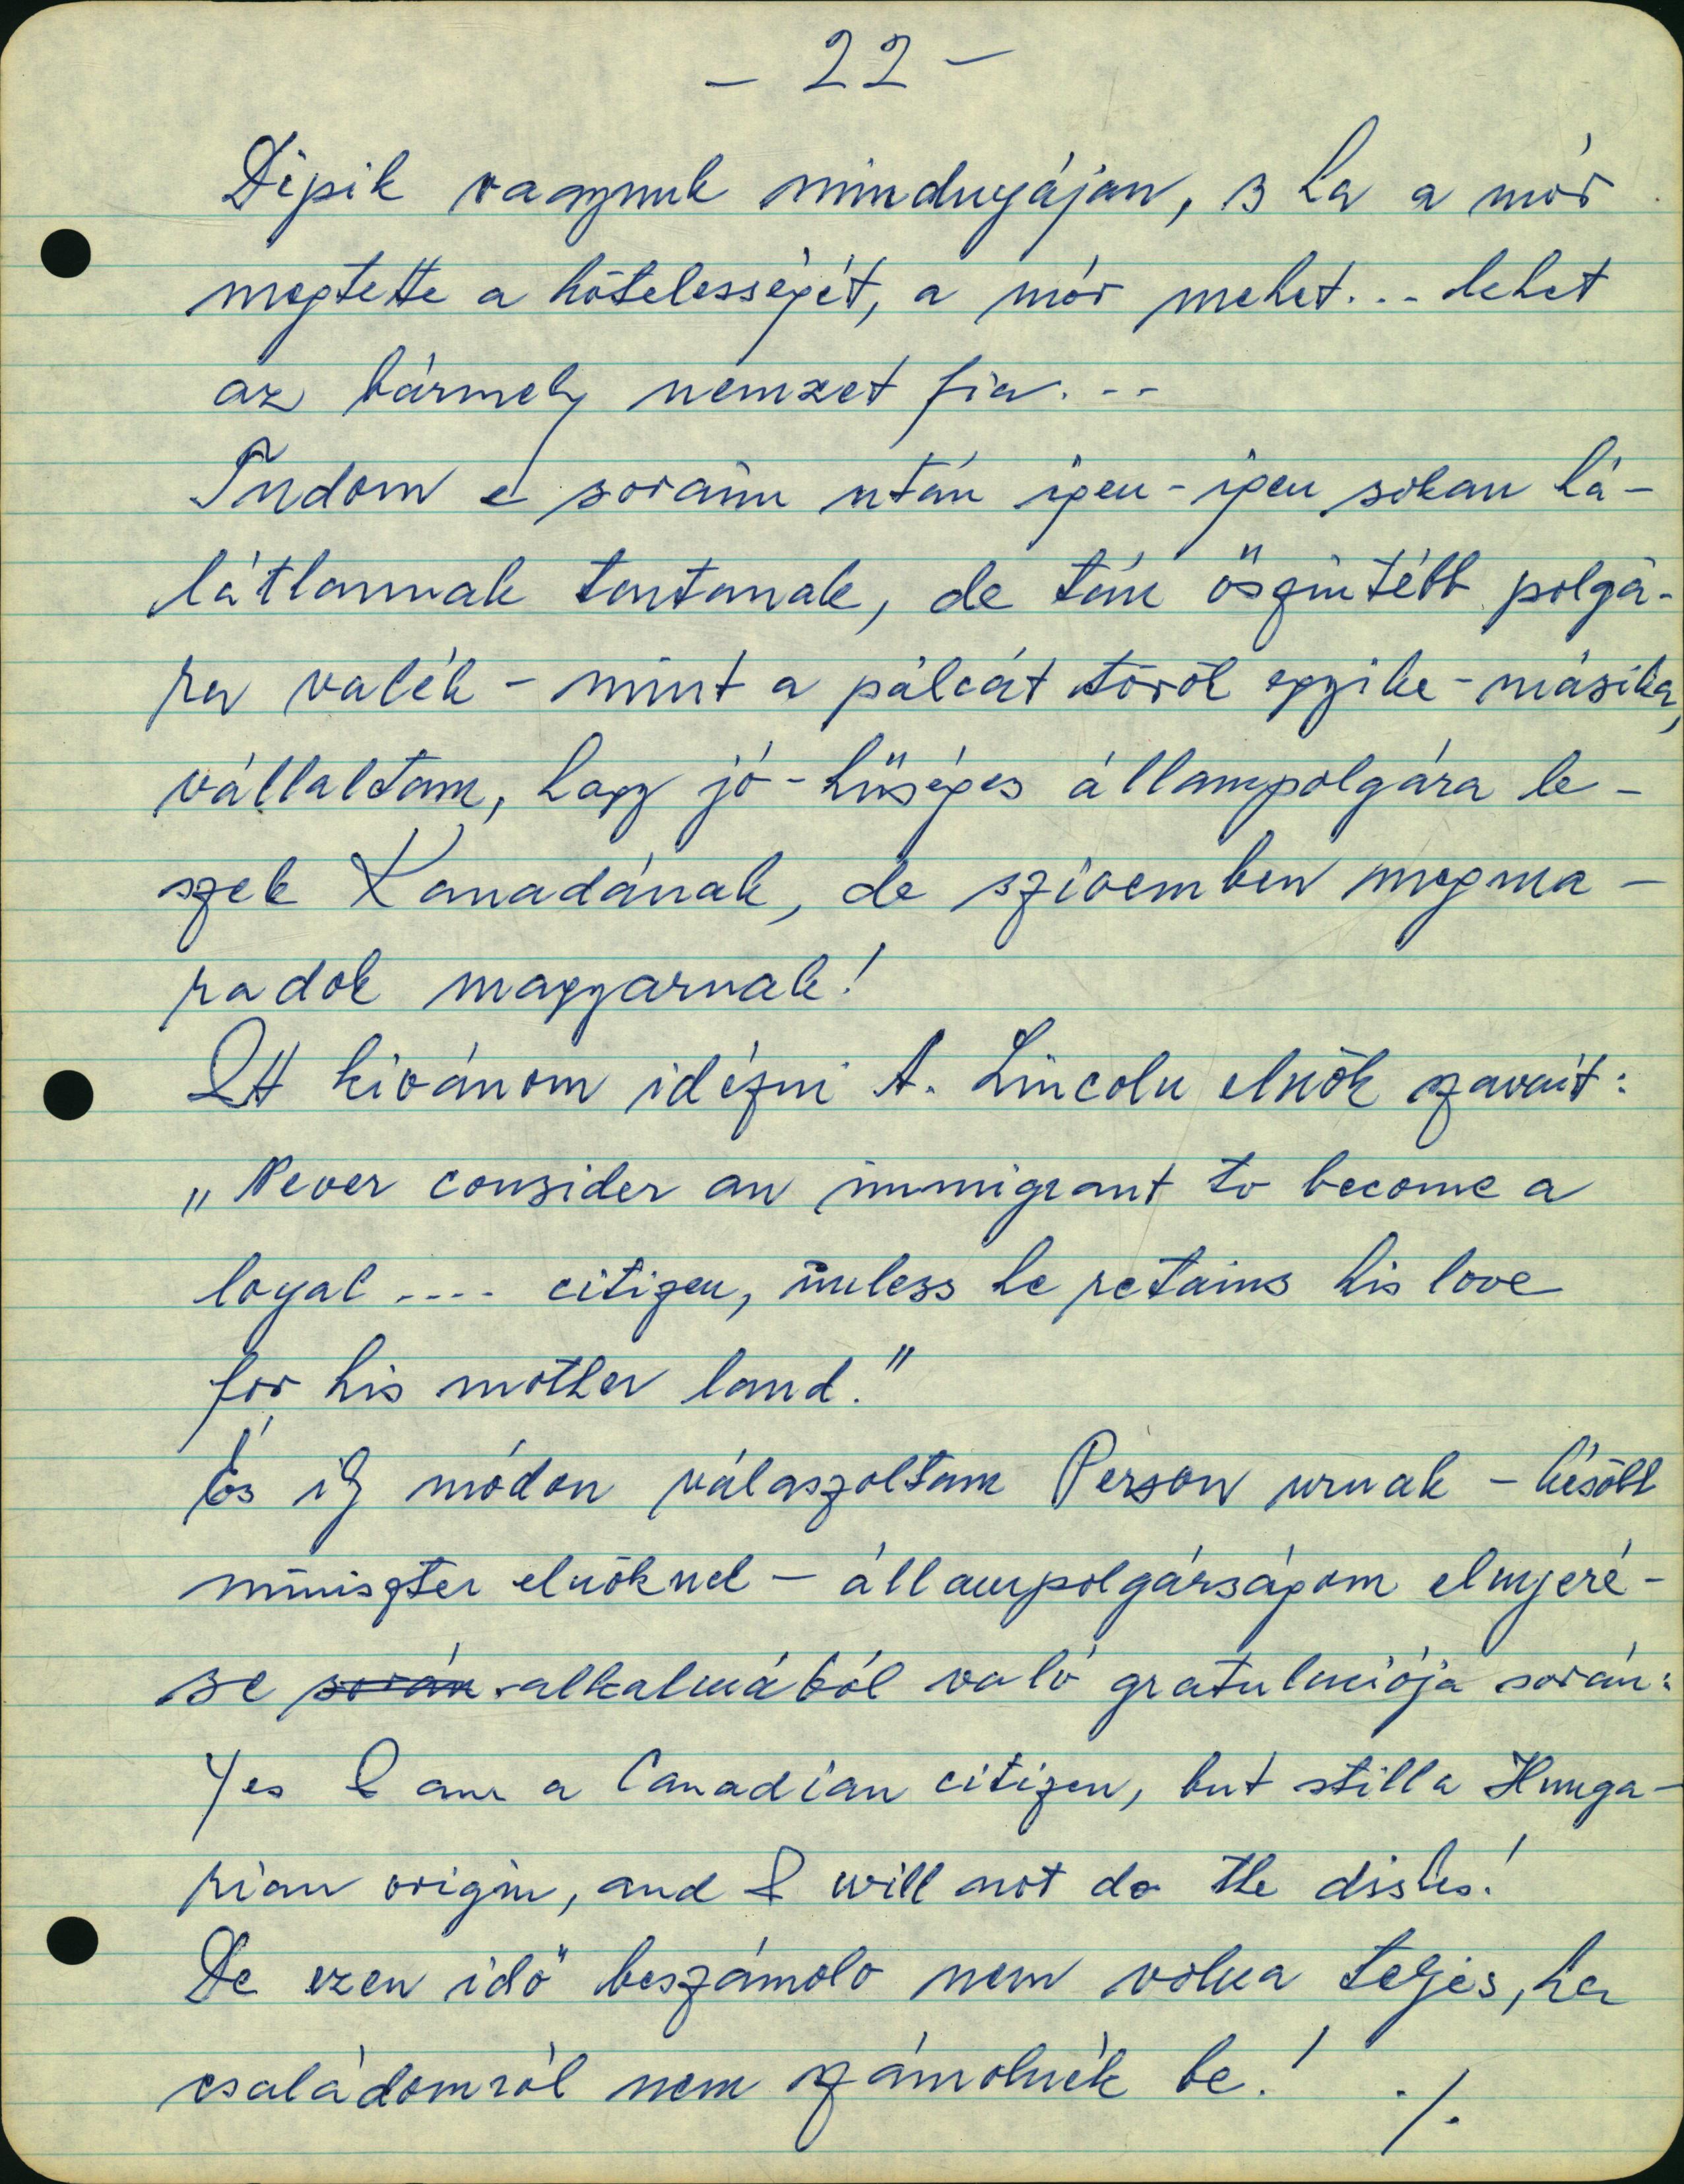 - 22 -
Dipik vagyunk mindnyáján, s ha a mór
megtette a kötelességét, a mór mehet... lehet
az bármely nemzet fia...
Tudom e soraim után igen-igen sokan há-
látlannak tartanak, de tán őszintébb polgá-
ra valék - mint a pálcát törők egyike-másika,
vállaltam, hogy jó-hűséges állampolgára le-
szek Kanadának, de szivemben megma-
radok magyarnak!
Itt kivánom idézni A. Lincoln elnök szavait:
„Never consider an immigrant to become a
loyal .... citizen, unless he retains his love
for his mother land."
És ily módon válaszoltam Person urnak - később
miniszter elnöknek - állampolgárságom elnyeré-
se során alkalmából való gratulációja során:
Yes I am a Canadian citizen, but still a Hunga-
rian origin, and I will not do the dishes!
De ezen idő beszámoló nem volna teljes, ha
családomról nem számolnék be! ./.